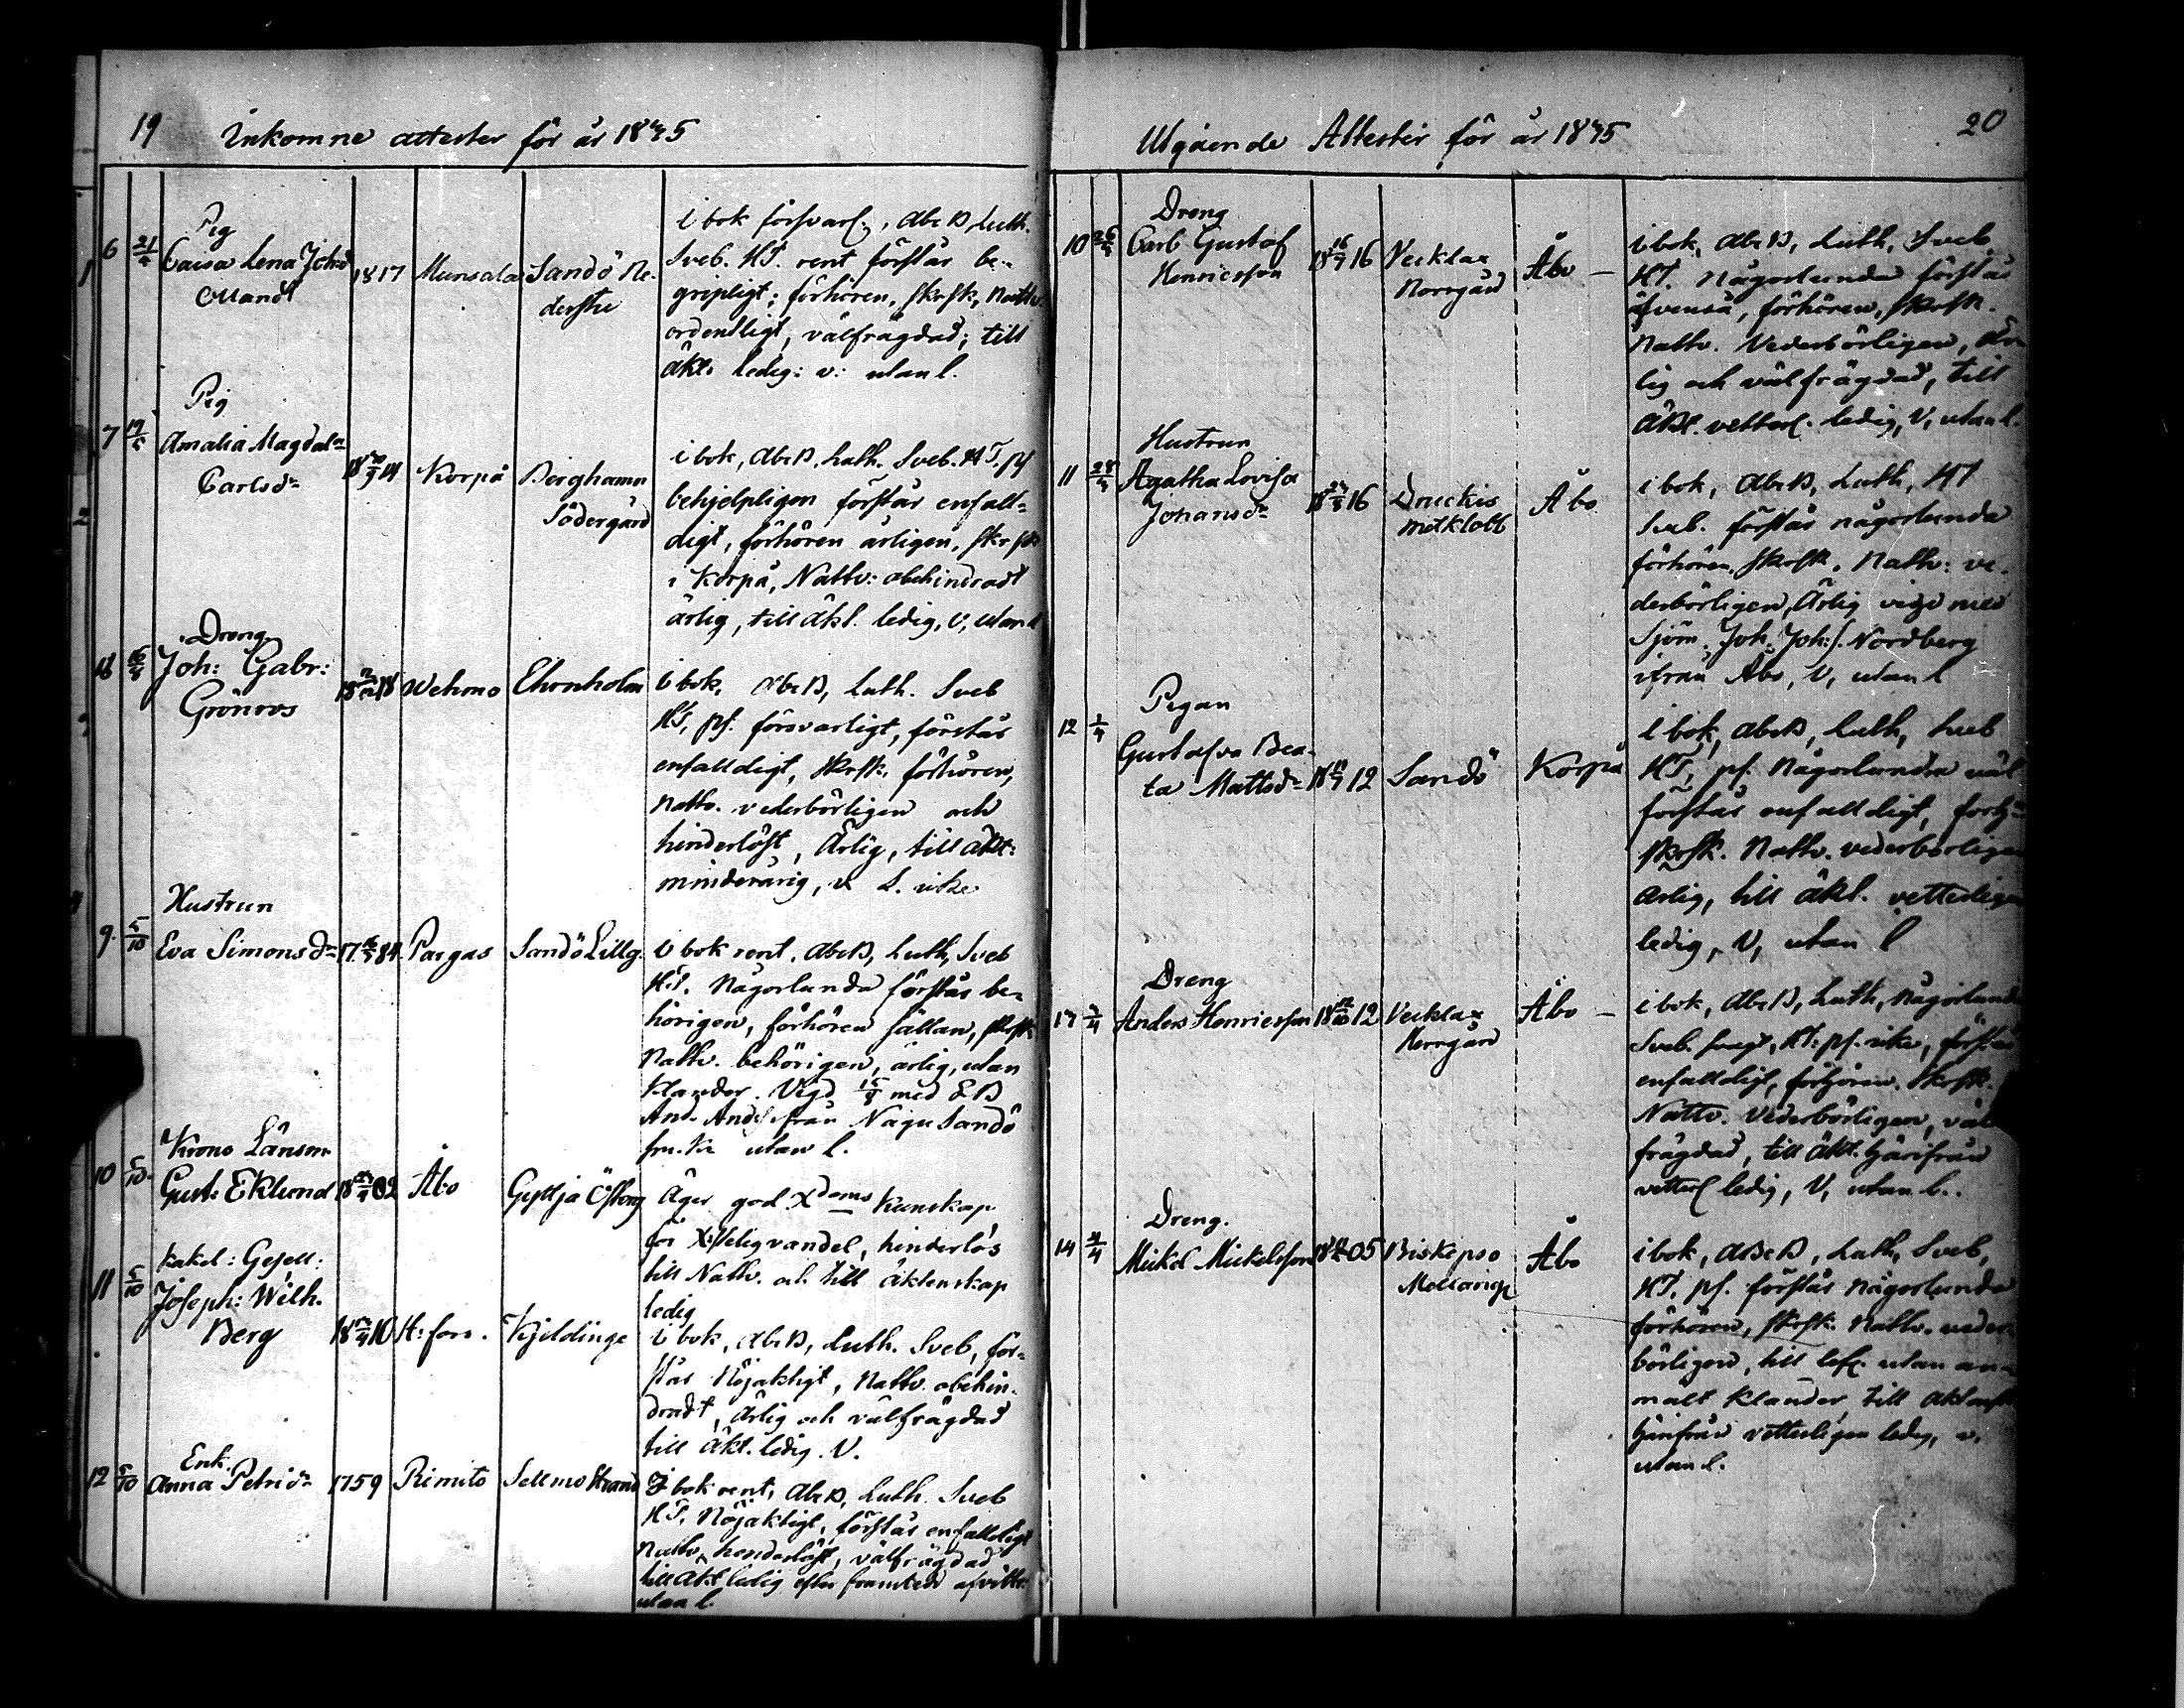 19 Inkomne attester för år 1845
6 21/4 Pig
Caisa Lena Johsd
Mandt
1817 Munsala Sandö Ne-
derste
i bok försvarl., AbcB, Luth.
Sveb. HT. rent förstår be-
gripligt; förhören, skrsk, Nattv
ordentligt, välfrägdad; till
äkt. ledig: v: utan l.
7 Pig
Amalia Magdal=
Carlsd=
Korpå Berghamn
Södergård
i bok, AbcB, Luth. Sveb. HT, pf
behjelpligen förstår enfall=
digt, förhören årligen, skrsk
i Korpå, Nattv: obehindradt
ärlig, till äkt. ledig, V, utan l
Dreng
Joh: Gabr:
Grönroos
Wehmo Ehrnholm
i bok, AbcB, Luth. Sveb
HT, pf. försvarligt, förstår
enfalldigt, skrsk, förhören,
Nattv. vederbörligen och
hinderlöst, Ärlig, till äkt:
minderårig, v. L. icke
9. 5/10 Hustrun
Eva Simonsd=
Pargas Sandö Lillg.
i bok rent, AbcB, Luth, Sveb
HT. Någorlunda förstår be=
hörigen, förhören sällan, skrsk
Nattv. behörigen, ärlig, utan
klander. Vigd med
And. Ands. från Nagu Sandö
utan l.
10 5/10 Krono Länsm
Gust: Eklund
Åbo Gyttja Österg
Äger god Xdoms kunskap
för Xstelig vandel, hinderlös
till Nattv. och till äktenskap
ledig
11 5/10 Kakel: Gesell:
Joseph: Wilh.
Berg
H:fors. Kjeldinge
i bok, AbcB, Luth. Sveb, för=
står Nöjaktigt, Nattv. obehin-
dradt, Ärlig och välfrägdad
till äkt. ledig. V.
12 5/10 Enk.
Anna Petrid=
1759 Rimito Sellmo Strand
I bok rent, AbcB, Luth. Sveb
HT, Nöjaktigt, förstår enfalldigt
Nattv. henderlöst, välfrägdad
till äkt ledig efter framledn afvittr.
utan l.
Utgående Attester för år 1845 20
10 26/3 Dreng
Carl Gustaf
Henricsson
Vecklax
Norrgård
Åbo —
i bok, AbcB, Luth, Sveb,
HT. Någorlunda förstår
äfvenså, förhören, skrsk.
Nattv. Vederbörligen, Är-
lig och välfrägdad, till
äkt. vetterl. ledig, V, utan l.
11 28/3 Hustrun
Agatha Lovisa
Johansd=
Druckis
Åbo
i bok, AbcB, Luth, HT
Sveb. förstår någorlunda
förhören, skrsk. Nattv: ve-
derbörligen, Ärlig vigd med
Sjöm. Joh. Joh:s. Nordberg
ifrån Åbo, V, utan l
12 1/4 Pigan
Gustafva Bea-
ta Mattsd=
Sandö Korpå
i bok, AbcB, Luth, Sveb
HT, pf. Någorlunda väl
förstår enfalldigt, förh=
skrsk. Nattv. vederbörligen
ärlig, till äkt. vetterligen
ledig, V, utan l
Dreng
Anders Henricsson
Vecklax
Norrgård
Åbo —
i bok, AbcB, Luth, Någorlunda
Sveb. svagt, HT: pf. icke, förstår
enfalldigt, förhören. skrsk.
Nattv. Vederbörligen, väl
frägdad, till äkt. härifrån
vetterl ledig, V, utan l..
14 Dreng.
Mickel Mickelsson
Biskepsö
Mellang
Åbo
i bok, AbcB, Luth, Sveb,
HT, pf. förstår Någorlunda
förhören, skrsk: Nattv. veder-
börligen, till lef. utan an-
mält klander, till äktensk
härifrån vetterligen ledig, v.
utan l.